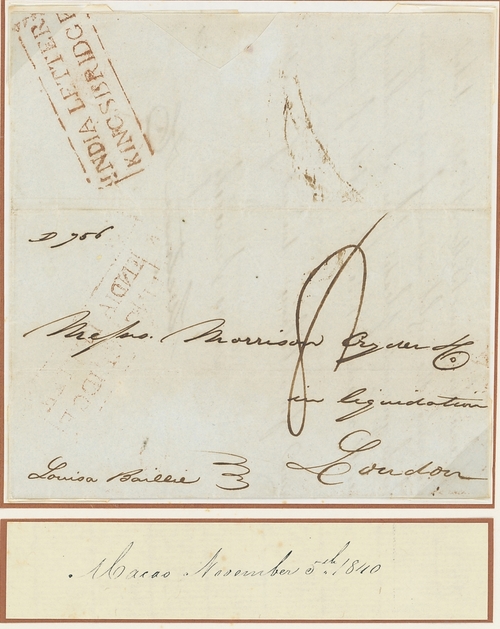 INDIA LETTER
KINGSBRIDGE
Messrs. Morrison Cryder & Co.
in liquidation
London
Louisa Baillie
Macao November 5th. 1840